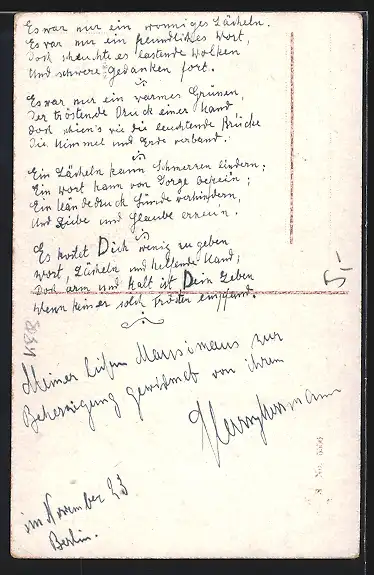 Es war nur ein wonniges Lächeln.
Es war nur ein freundliches Wort,
Doch scheuchte es lastende Wolken
Und schwere Gedanken fort.
Es war nur ein warmes Grüssen,
Der tröstende Druck einer Hand
Doch schien's wie die leuchtende Brücke
Die Himmel und Erde verband.
Ein Lächeln kann Schmerzen lindern;
Ein Wort kann von Sorge befrein;
Ein Händedruck Sünde verhindern,
Und Liebe und Glaube erneun.
Es kostet Dich wenig zu geben
Wort, Lächeln und helfende Hand;
Doch arm und kalt ist Dein Leben
Wenn keiner solch Trösten empfand.
Meiner lieben Mausimaus zur
Beherzigung gewidmet von ihrem
im November 23
Berlin.
5,-